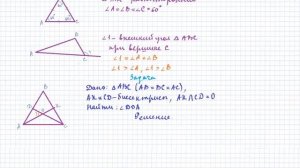 ∠A=∠B=∠C=60°
∠1 - внешний угол △ABC
при вершине C
∠1 = ∠A+∠B
∠1 > ∠A, ∠1 > ∠B
Задача
Дано: △ABC (AB=BC=AC),
AK и CD - биссектрисы, AK∩CD=O
Найти: ∠DOA
Решение